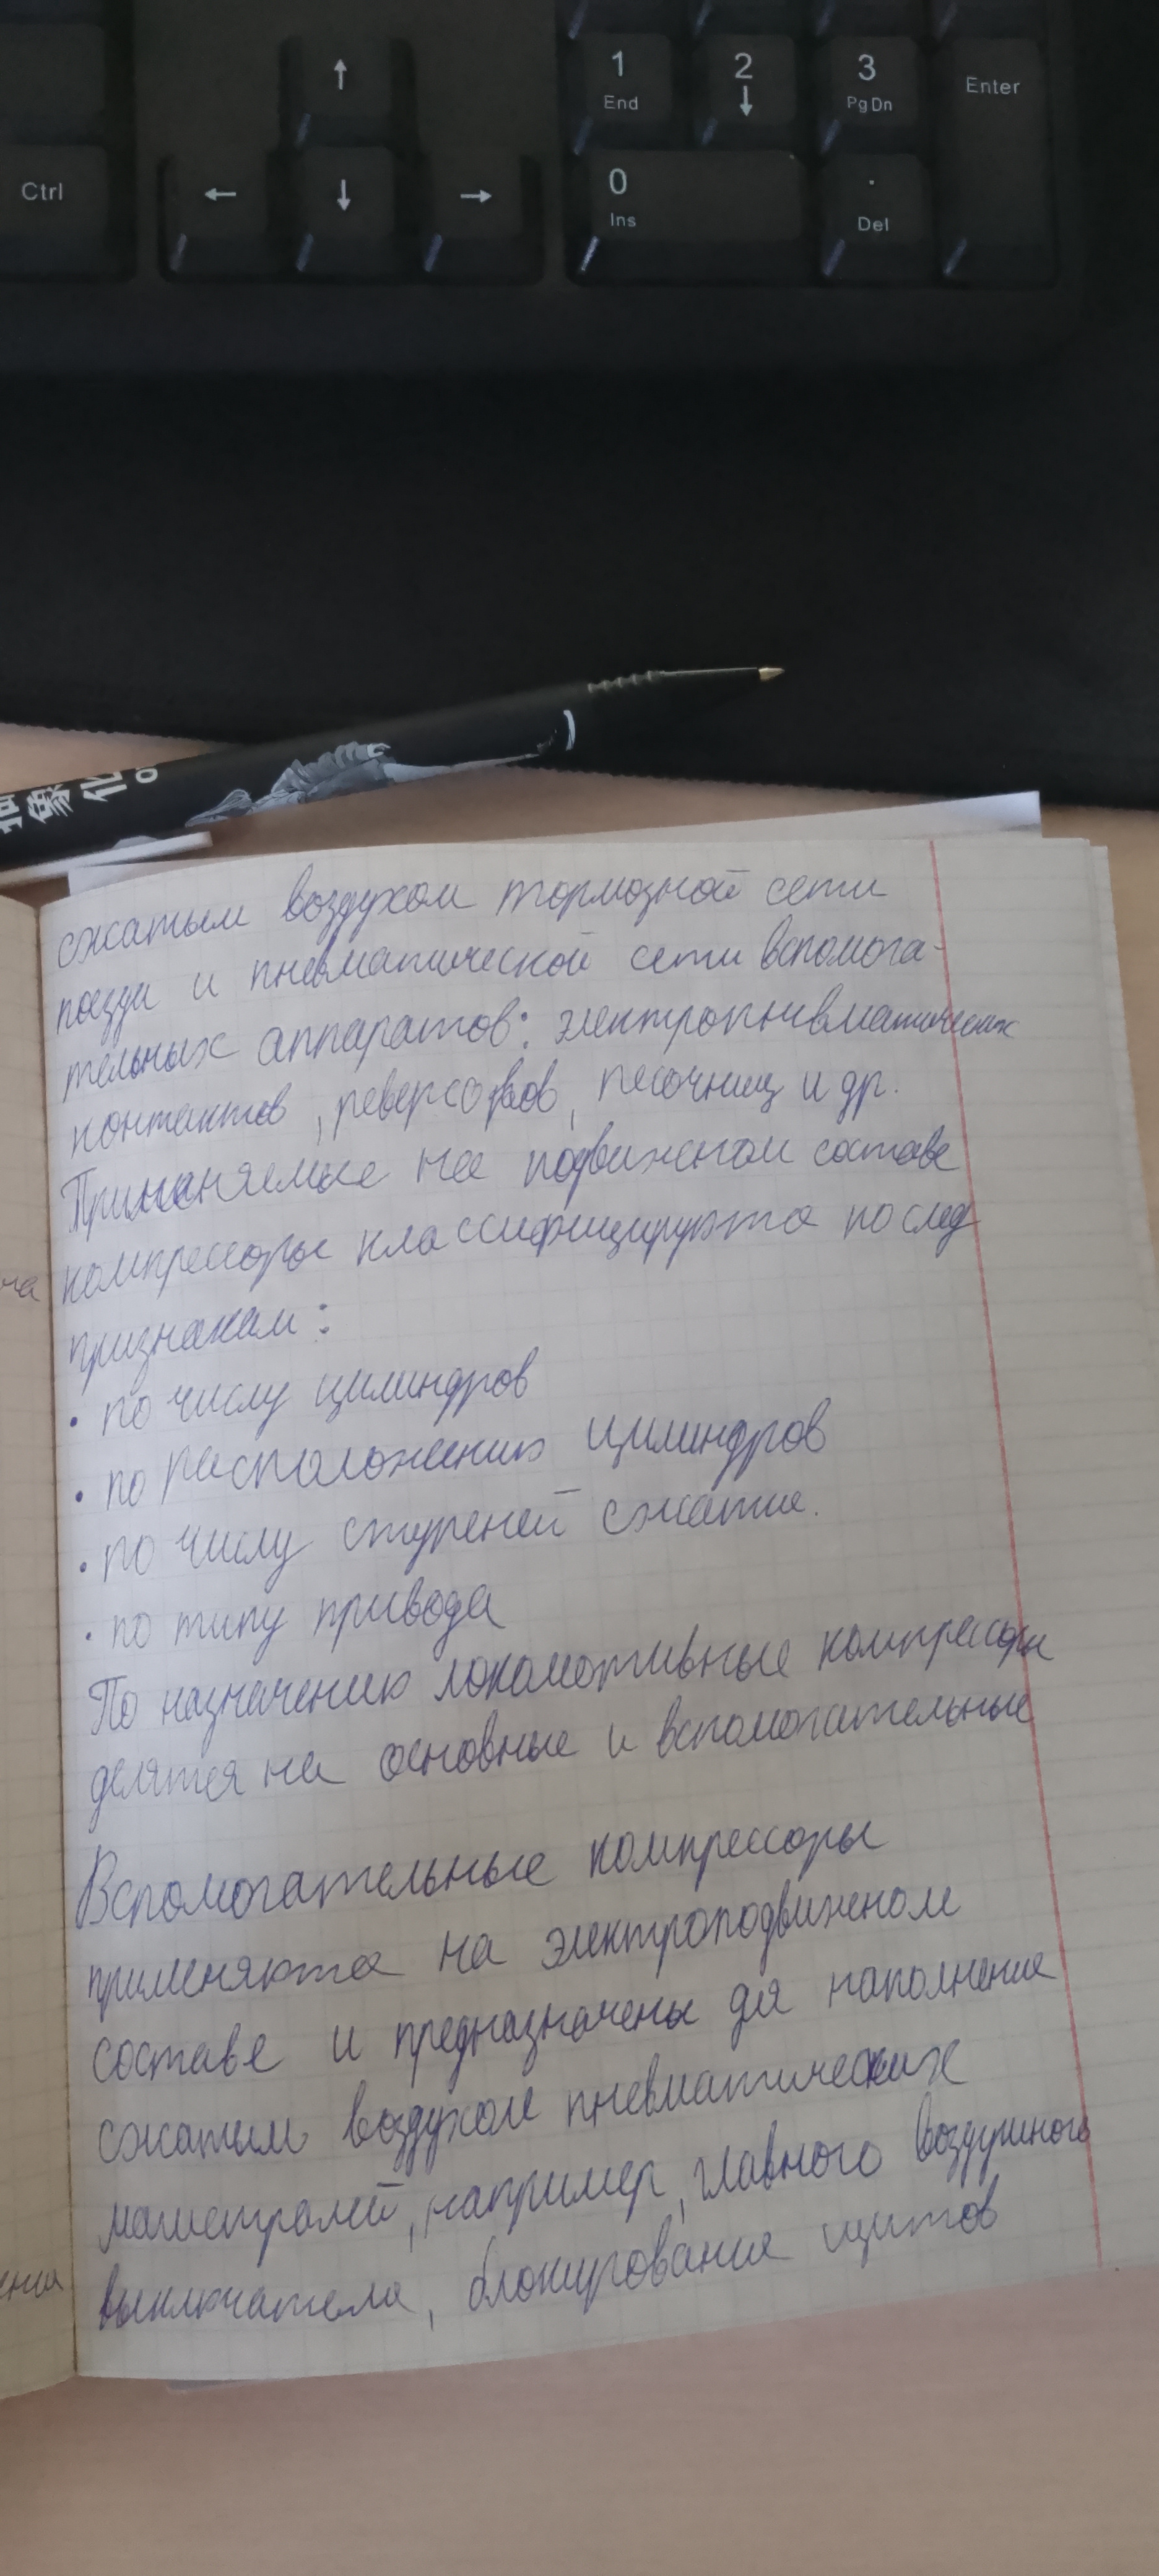 ↑
1
End
2
↓
3
PgDn
Enter
Ctrl
←
↓
→
0
Ins
.
Del
象 化
сжатым воздухом тормозной сети
поезди и пневматической сети вспомога-
тельных аппаратов: электропнивматических
контактов, реверсоров, песочниц и др.
Применяемые на подвижном составе
компрессоры классифицируются по след
признакам:
• по числу цилиндров
• по расположению цилиндров
• по числу ступеней сжатие.
• по типу привода
По назначению локомотивные компрессоры
делятся на основные и вспомогательные
Вспомогательные компрессоры
применяются на электроподвиженом
составе и предназначены для наполнение
сжатым воздухом пневматических
магистралей, например, главного воздушного
выключателя, блокирование щитов